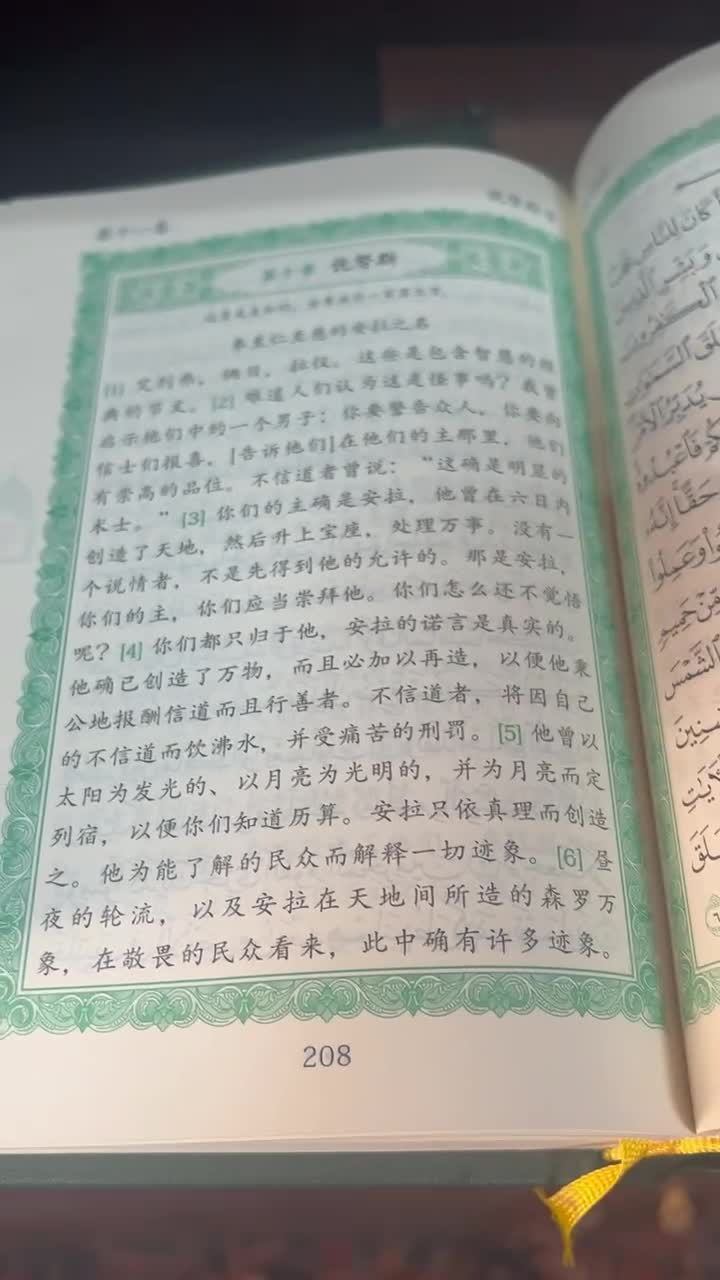 第十一卷
第十章 优努斯
奉至仁至慈的安拉之名
[1] 艾列弗，俩目，拉仪。这些是包含智慧的经
典的节文。[2] 难道人们认为这是怪事吗？我曾
启示他们中的一个男子：你要警告众人，你要向
信士们报喜，[告诉他们]在他们的主那里，他们
有崇高的品位。不信道者曾说：“这确是明显的
术士。”[3] 你们的主确是安拉，他曾在六日内
创造了天地，然后升上宝座，处理万事。没有一
个说情者，不是先得到他的允许的。那是安拉，
你们的主，你们应当崇拜他。你们怎么还不觉悟
呢？[4] 你们都只归于他，安拉的诺言是真实的。
他确已创造了万物，而且必加以再造，以便他秉
公地报酬信道而且行善者。不信道者，将因自己
的不信道而饮沸水，并受痛苦的刑罚。[5] 他曾以
太阳为发光的、以月亮为光明的，并为月亮而定
列宿，以便你们知道历算。安拉只依真理而创造
之。他为能了解的民众而解释一切迹象。[6] 昼
夜的轮流，以及安拉在天地间所造的森罗万
象，在敬畏的民众看来，此中确有许多迹象。
208
كَانَ لِلنَّاسِ
وَبَشِّرِ الَّذِينَ
يُدَبِّرُ الْأَمْرَ
فَاعْبُدُوهُ
حَقًّا إِنَّهُ
وَعَمِلُوا
مِّنْ حَمِيمٍ
الشَّمْسَ